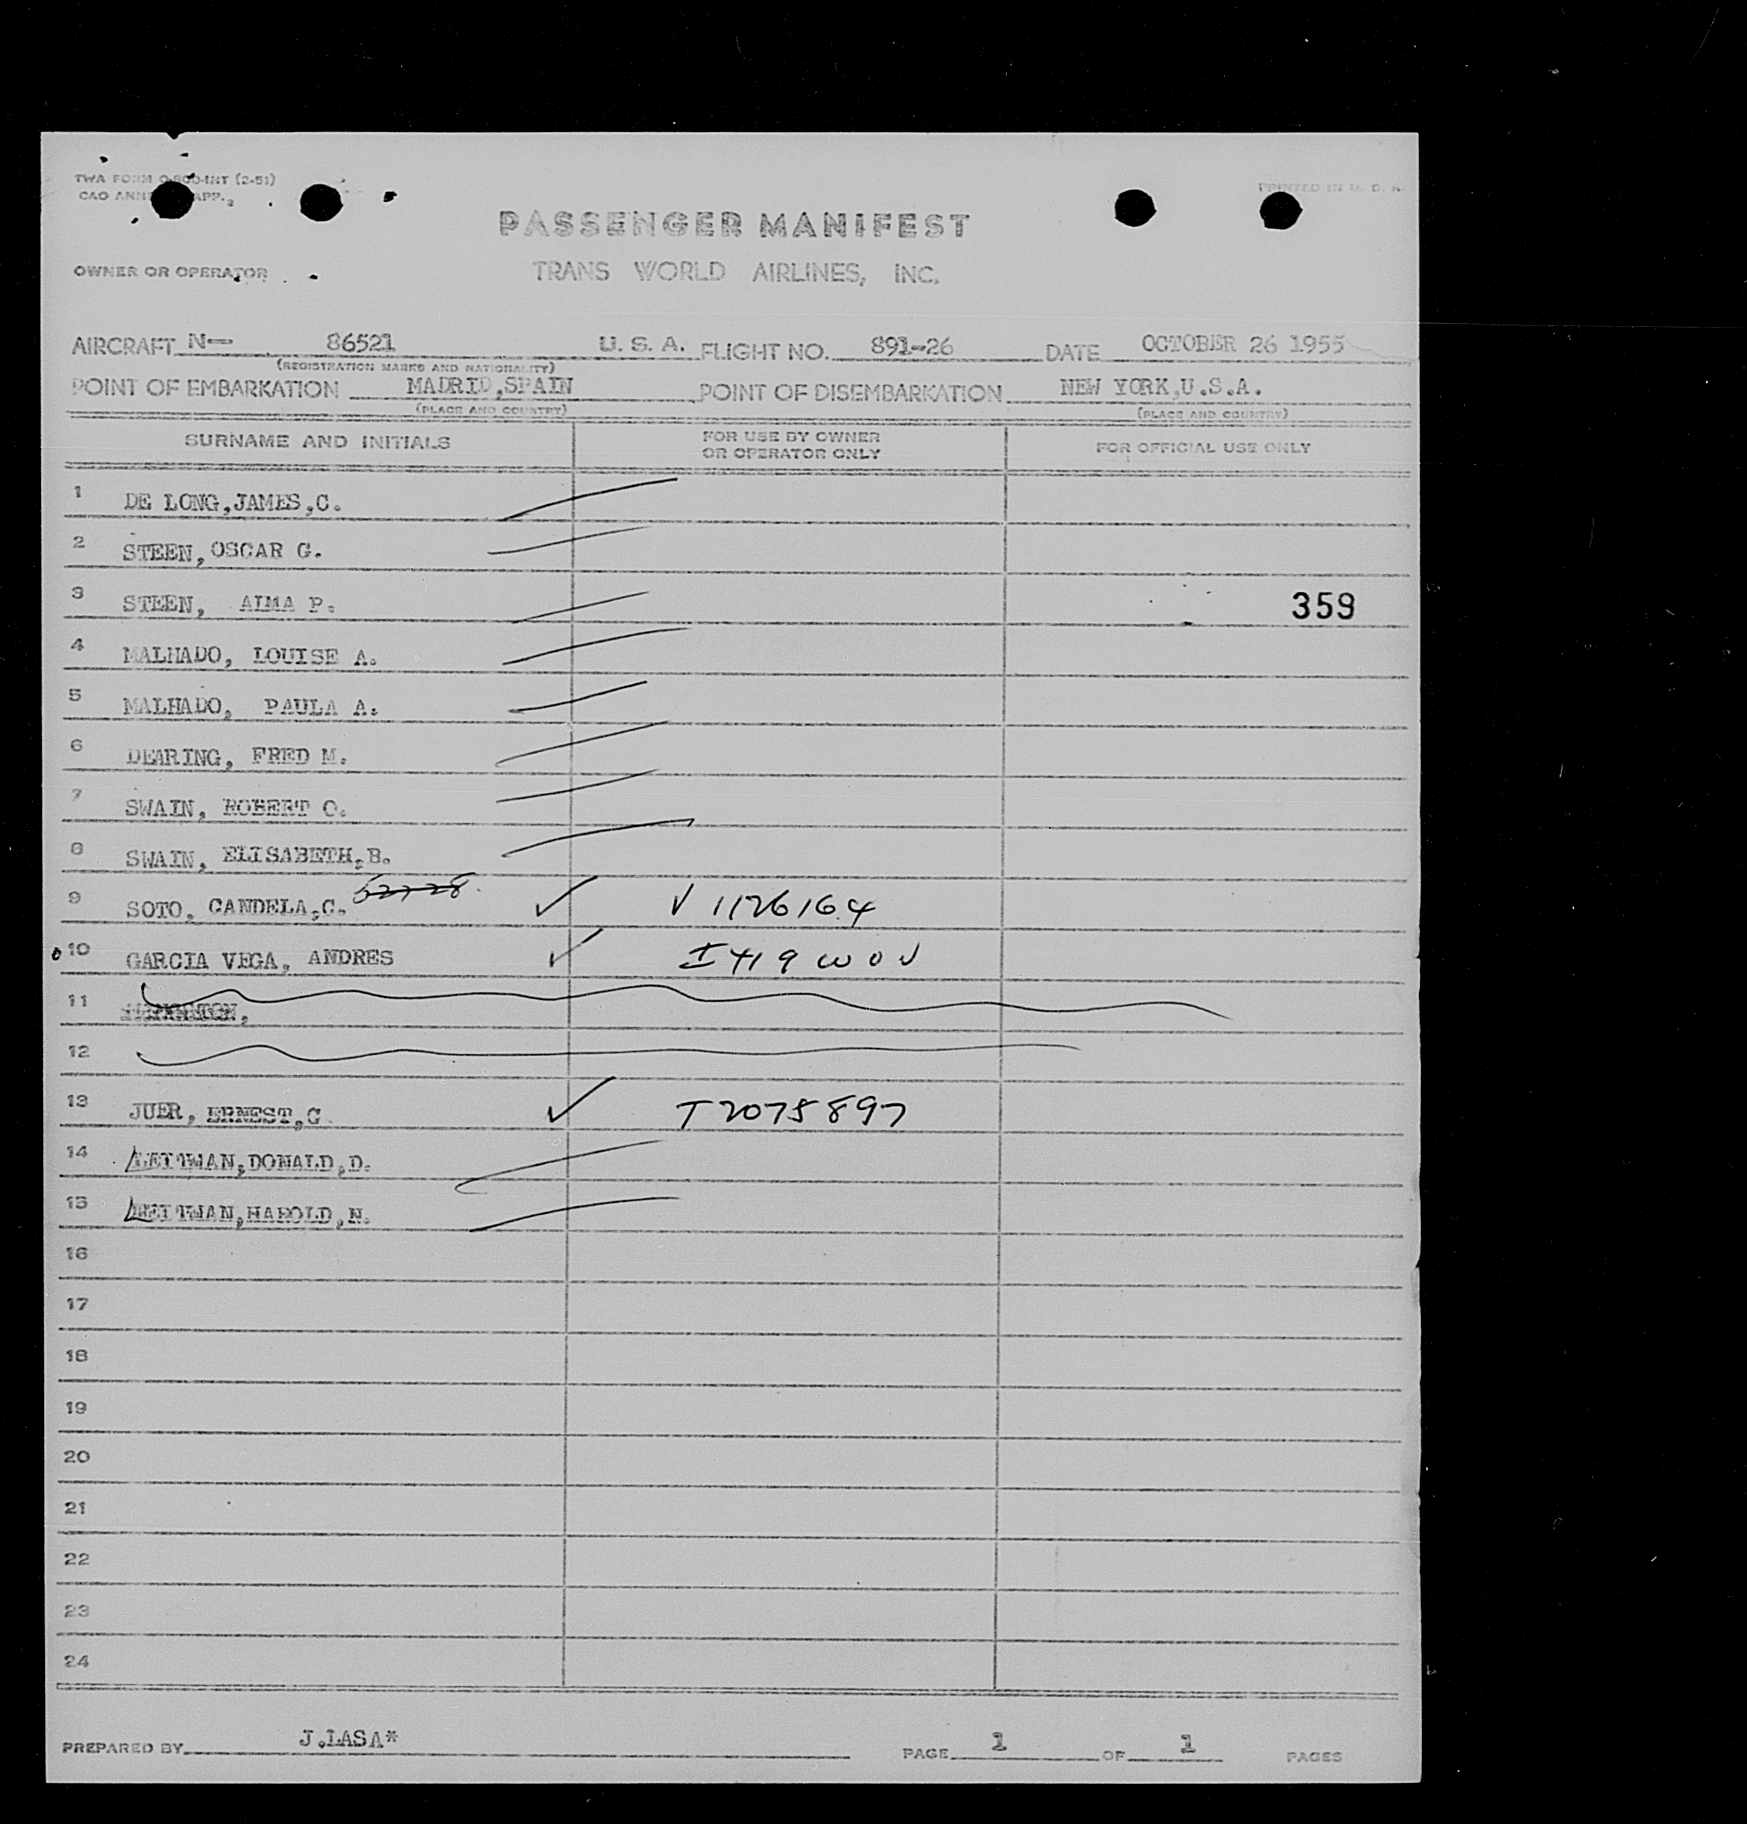 TWA FORM O-800-INT (2-51)
CAO ANNE APP. 2
PRINTED IN U. S. A.
PASSENGER MANIFEST
OWNER OR OPERATOR
TRANS WORLD AIRLINES, INC.
AIRCRAFT N- 86521 U. S. A. FLIGHT NO. 891-26 DATE OCTOBER 26 1955
(REGISTRATION MARKS AND NATIONALITY)
POINT OF EMBARKATION MADRID,SPAIN POINT OF DISEMBARKATION NEW YORK,U.S.A.
(PLACE AND COUNTRY) (PLACE AND COUNTRY)
SURNAME AND INITIALS FOR USE BY OWNER OR OPERATOR ONLY FOR OFFICIAL USE ONLY
1 DE LONG,JAMES,C.
2 STEEN, OSCAR G.
3 STEEN, ALMA P. 359
4 MALHADO, LOUISE A.
5 MALHADO, PAULA A.
6 DEARING, FRED M.
7 SWAIN, ROBERT O.
8 SWAIN, ELISABETH,B.
9 SOTO, CANDELA,C. 52728 ✓ V 1126164
10 GARCIA VEGA, ANDRES ✓ I 419
11
12
13 JUER, ERNEST,G ✓ T 2075897
14 LETTWAN,DONALD,D.
15 LETTWAN,HAROLD,N.
16
17
18
19
20
21
22
23
24
PREPARED BY J.LASA* PAGE 1 OF 1 PAGES